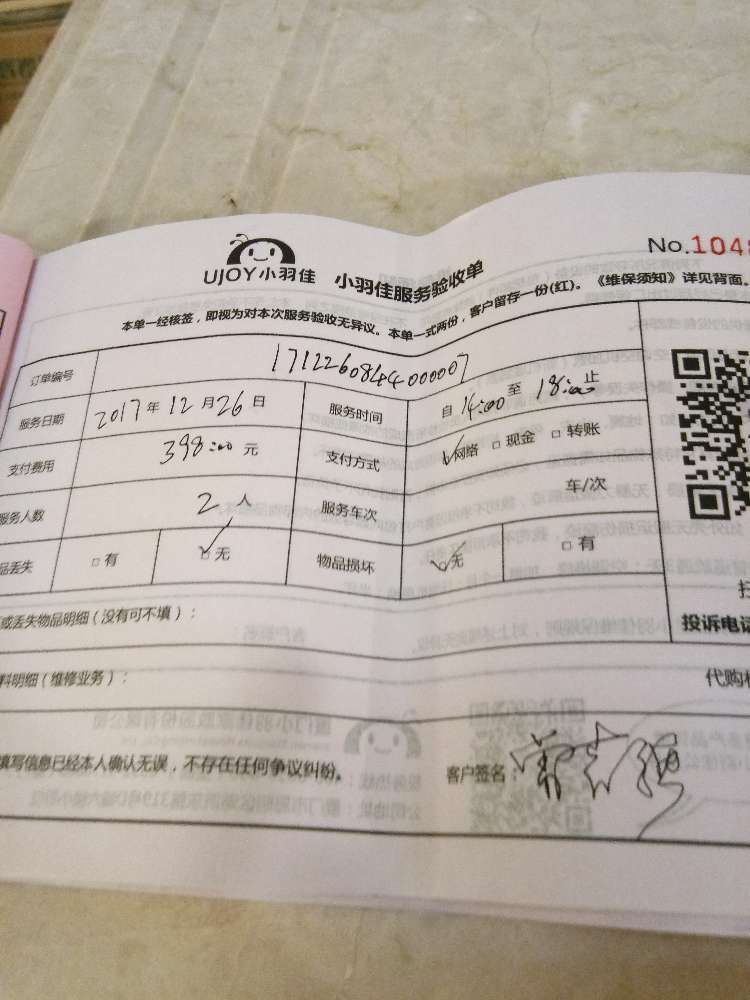 UJOY小羽佳 小羽佳服务验收单 No.104
本单一经核签，即视为对本次服务验收无异议。本单一式两份，客户留存一份(红)。《维保须知》详见背面。
订单编号 171226084400007
服务日期 2017年12月26日 服务时间 自14:00至18:00止
支付费用 398:00元 支付方式 网络 □现金 □转账
服务人数 2人 服务车次 车/次
品丢失 □有 □无 物品损坏 □无 □有
或丢失物品明细（没有可不填）：
投诉电话
料明细（维修业务）：
代购
填写信息已经本人确认无误，不存在任何争议纠纷。 客户签名：